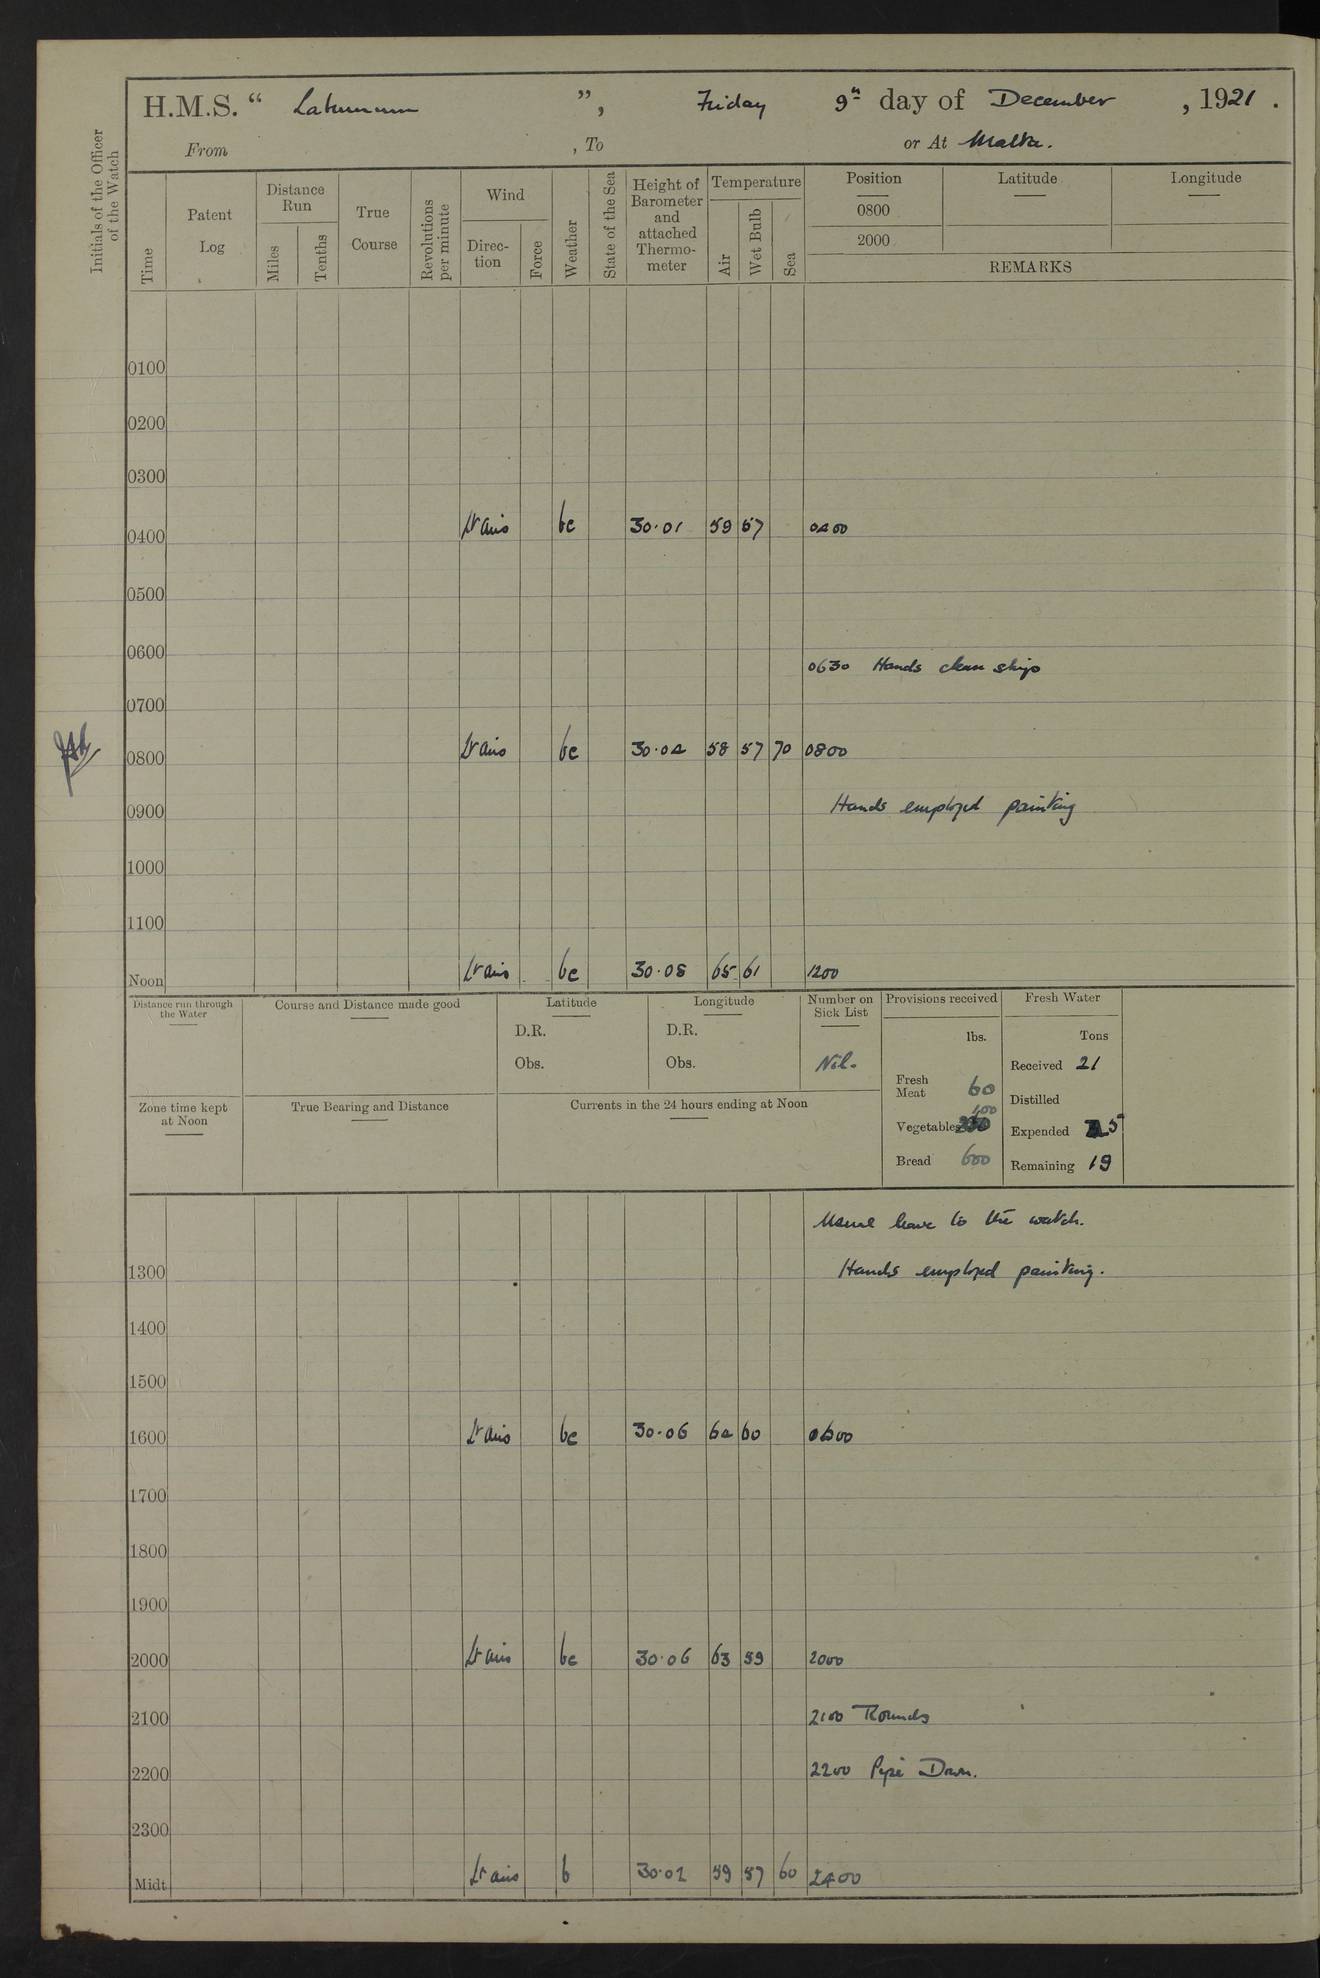 H.M.S. “ Laburnum ”, Friday 9th day of December , 1921 .
From , To or At Malta.
Initials of the Officer of the Watch
Time
Patent Log
Distance Run
Miles
Tenths
True Course
Revolutions per minute
Wind
Direc-tion
Force
Weather
State of the Sea
Height of Barometer and attached Thermo-meter
Temperature
Air
Wet Bulb
Sea
Position Latitude Longitude
0800
2000
REMARKS
0100
0200
0300
0400 Lt airs bc 30.01 59 57 0400
0500
0600
0630 Hands clean ship
0700
0800 Lt airs bc 30.04 58 57 70 0800
0900 Hands employed painting
1000
1100
Noon Lt airs bc 30.08 65 61 1200
Distance run through the Water
Course and Distance made good
Latitude
D.R.
Obs.
Longitude
D.R.
Obs.
Number on Sick List
Nil.
Provisions received
lbs.
Fresh Meat 60
Vegetables 100
Bread 600
Fresh Water
Tons
Received 21
Distilled
Expended 5
Remaining 19
Zone time kept at Noon
True Bearing and Distance
Currents in the 24 hours ending at Noon
Usual leave to the watch.
1300 Hands employed painting.
1400
1500
1600 Lt airs bc 30.06 64 60 1600
1700
1800
1900
2000 Lt airs bc 30.06 63 59 2000
2100 2100 Rounds
2200 2200 Pipe Down.
2300
Midt Lt airs b 30.02 59 57 60 2400